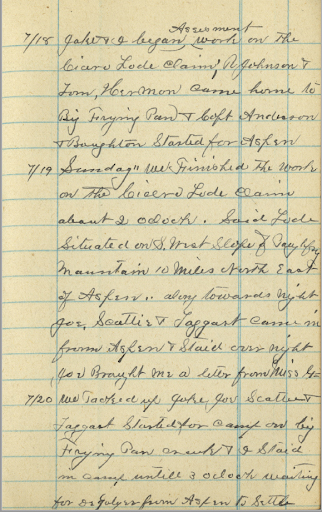 Assesment
7/18 Jake & I began work on the
Cicero Lode Claim, A Johnson &
Tom, Hermon came home to
Big Frying Pan & Capt Anderson
& Boughton Started for Aspen
7/19 Sunday" We Finished the work
on the Cicero Lode Claim
about 2 oclock. Said Lode
Situated on S. West Slope of
Mountain 10 Miles North East
of Aspen.. along towards night
Joe, Scattie & Taggart came in
from Aspen & Staid over night
Joe Braught me a leter from Miss
7/20 We Packed up Jake, Joe Scattie &
Taggart Started for camp on big
Frying Pan creek & I Staid
in camp untill 3 oclock waiting
for from Aspen to Settle